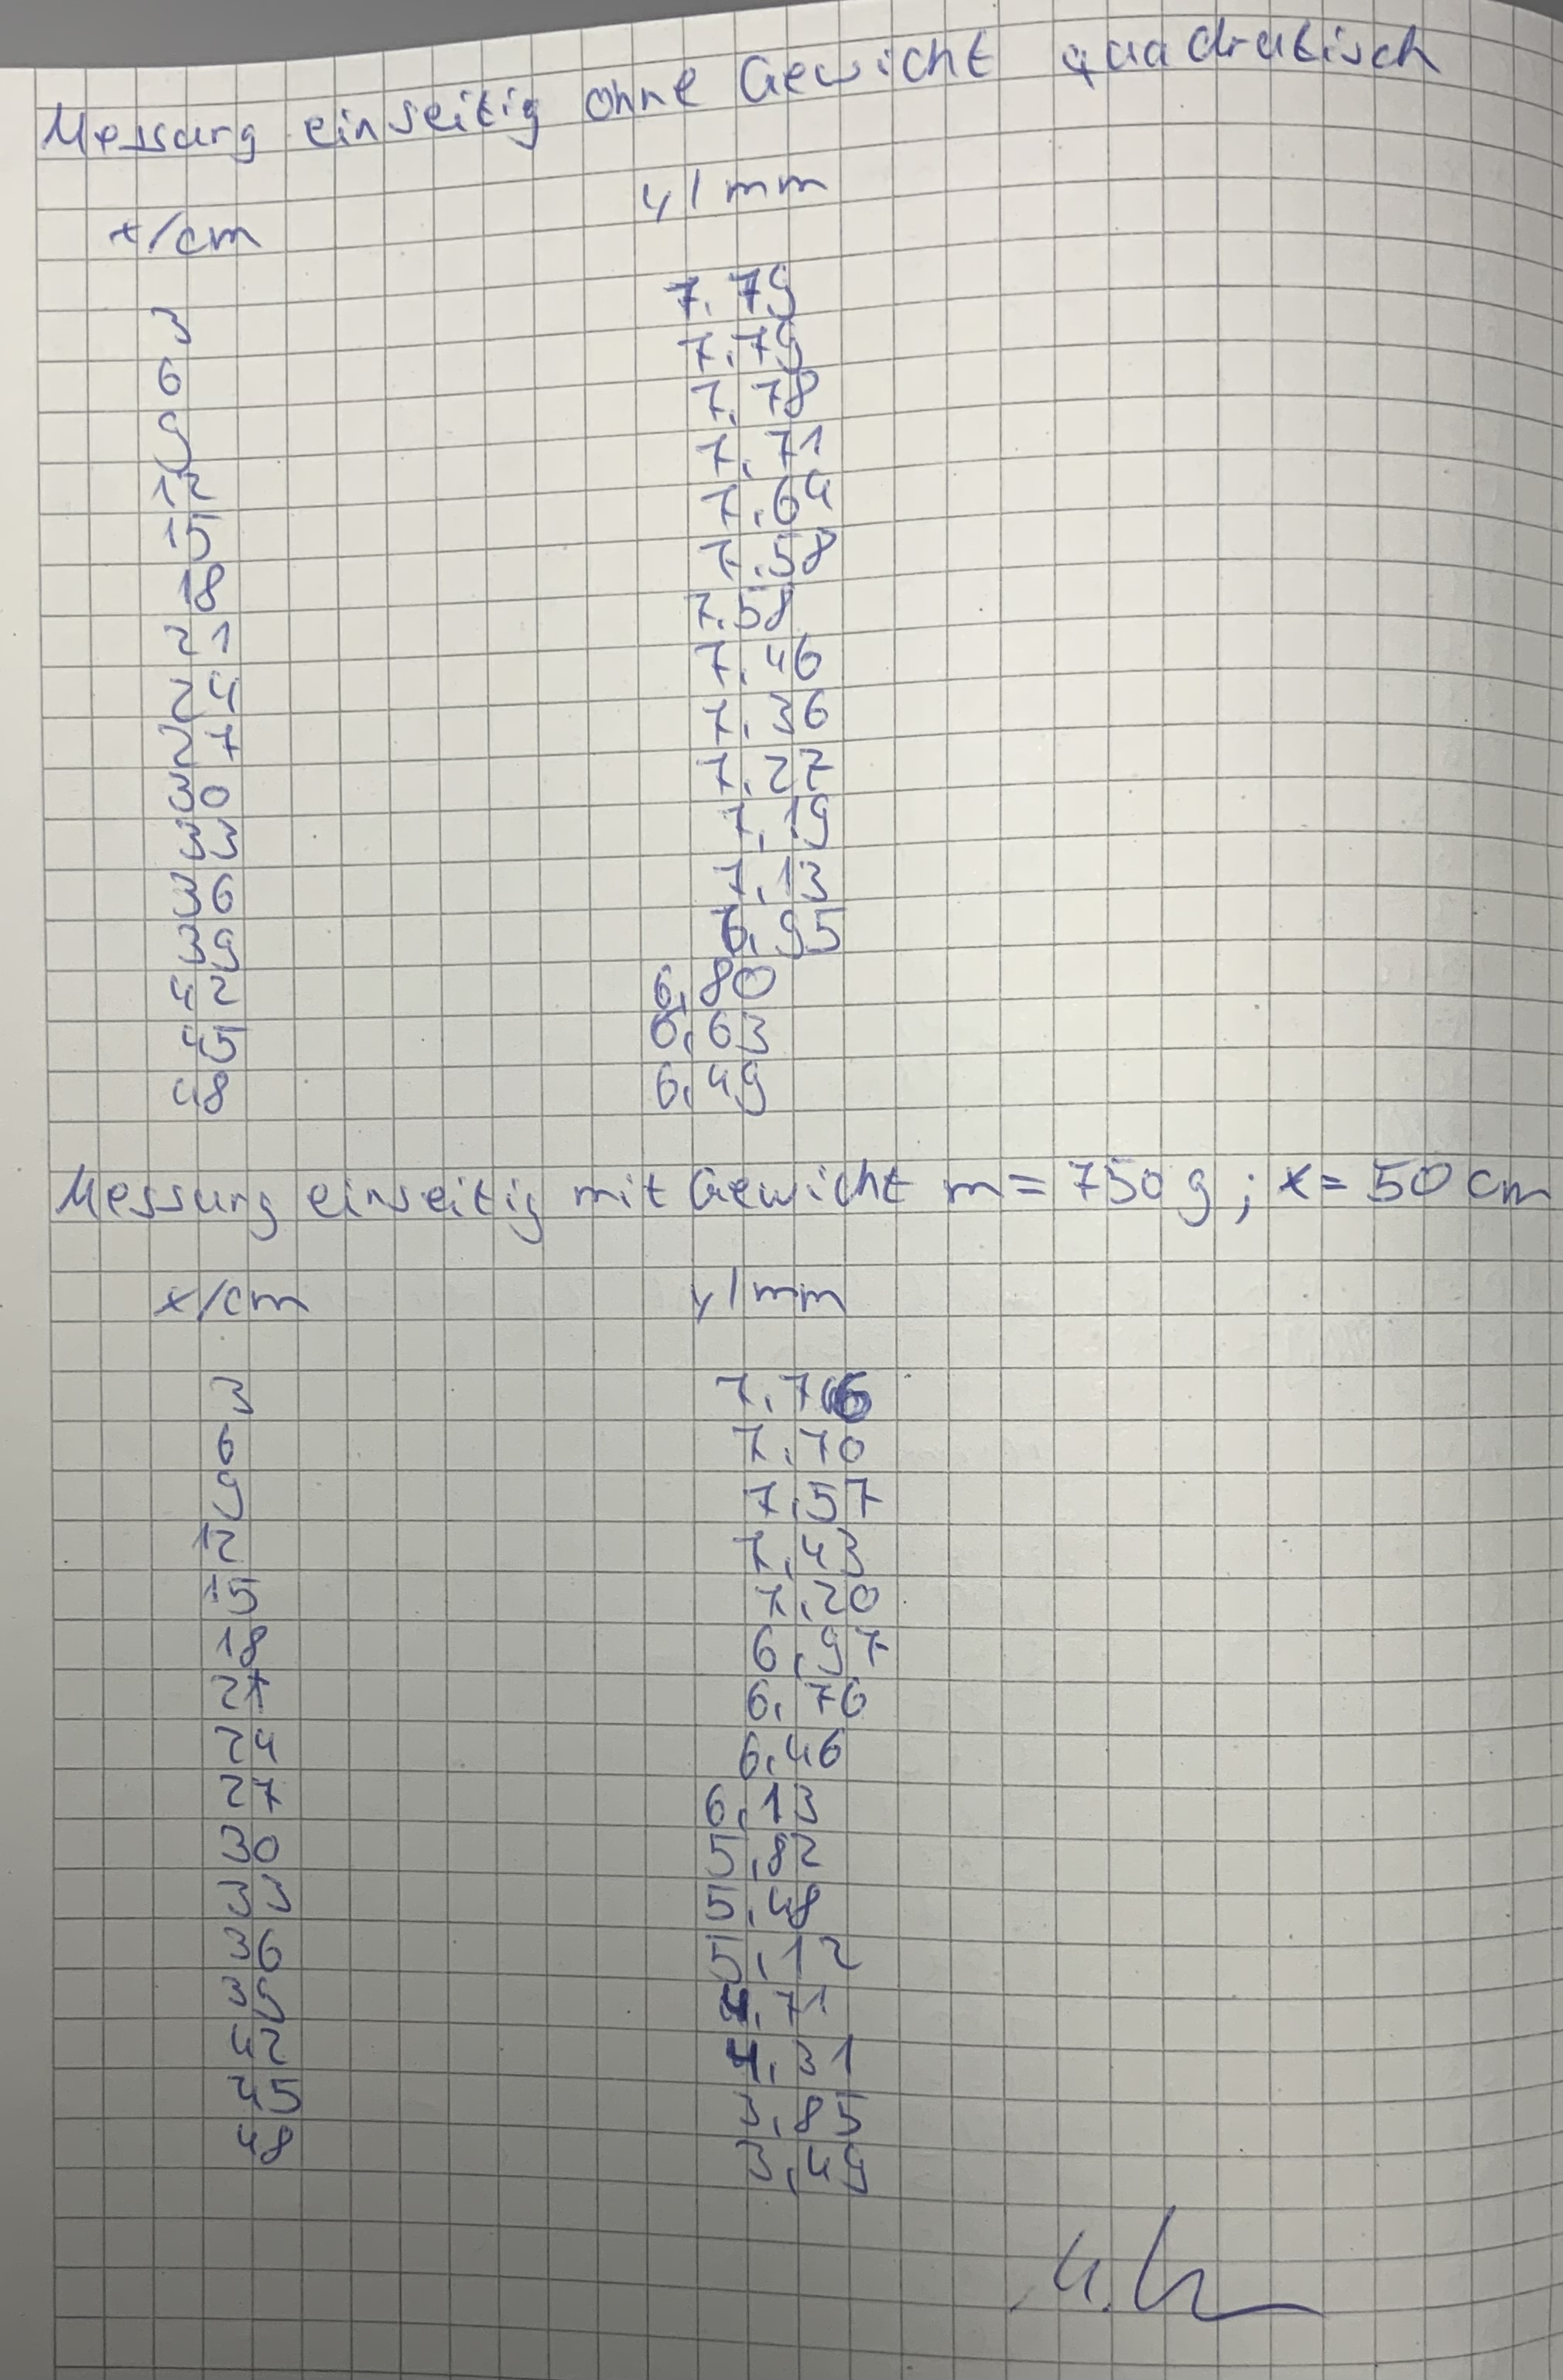 Messung einseitig ohne Gewicht quadratisch
x/cm y/mm
3 7.79
6 7.79
9 7.78
12 7.71
15 7.64
18 7.58
21 7.58
24 7.46
27 7.36
30 7.27
33 7.19
36 7.13
39 6.95
42 6.80
45 6.63
48 6.49
Messung einseitig mit Gewicht m = 750 g ; x = 50 cm
x/cm y/mm
3 7.76
6 7.70
9 7.57
12 7.43
15 7.20
18 6.97
21 6.76
24 6.46
27 6.13
30 5.82
33 5.48
36 5.12
39 4.71
42 4.31
45 3.85
48 3.49